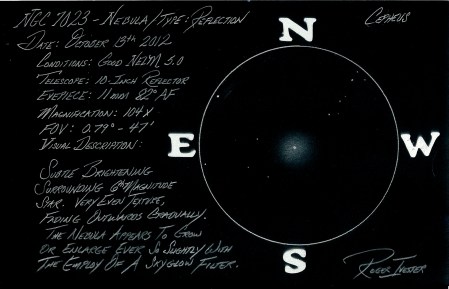 NGC 7023 - Nebula/Type: Reflection
Cepheus
Date: October 13th 2012
Conditions: Good NELM 5.0
Telescope: 10-Inch Reflector
Eyepiece: 11mm 82° AF
Magnification: 104X
FOV: 0.79° - 47'
Visual Description:
Subtle Brightening
Surrounding 6th Magnitude
Star. Very Even Texture,
Fading Outwards Gradually.
The Nebula Appears To Grow
Or Enlarge Ever So Slightly With
The Employ Of A Skyglow Filter.
N
E
W
S
Roger Ivester